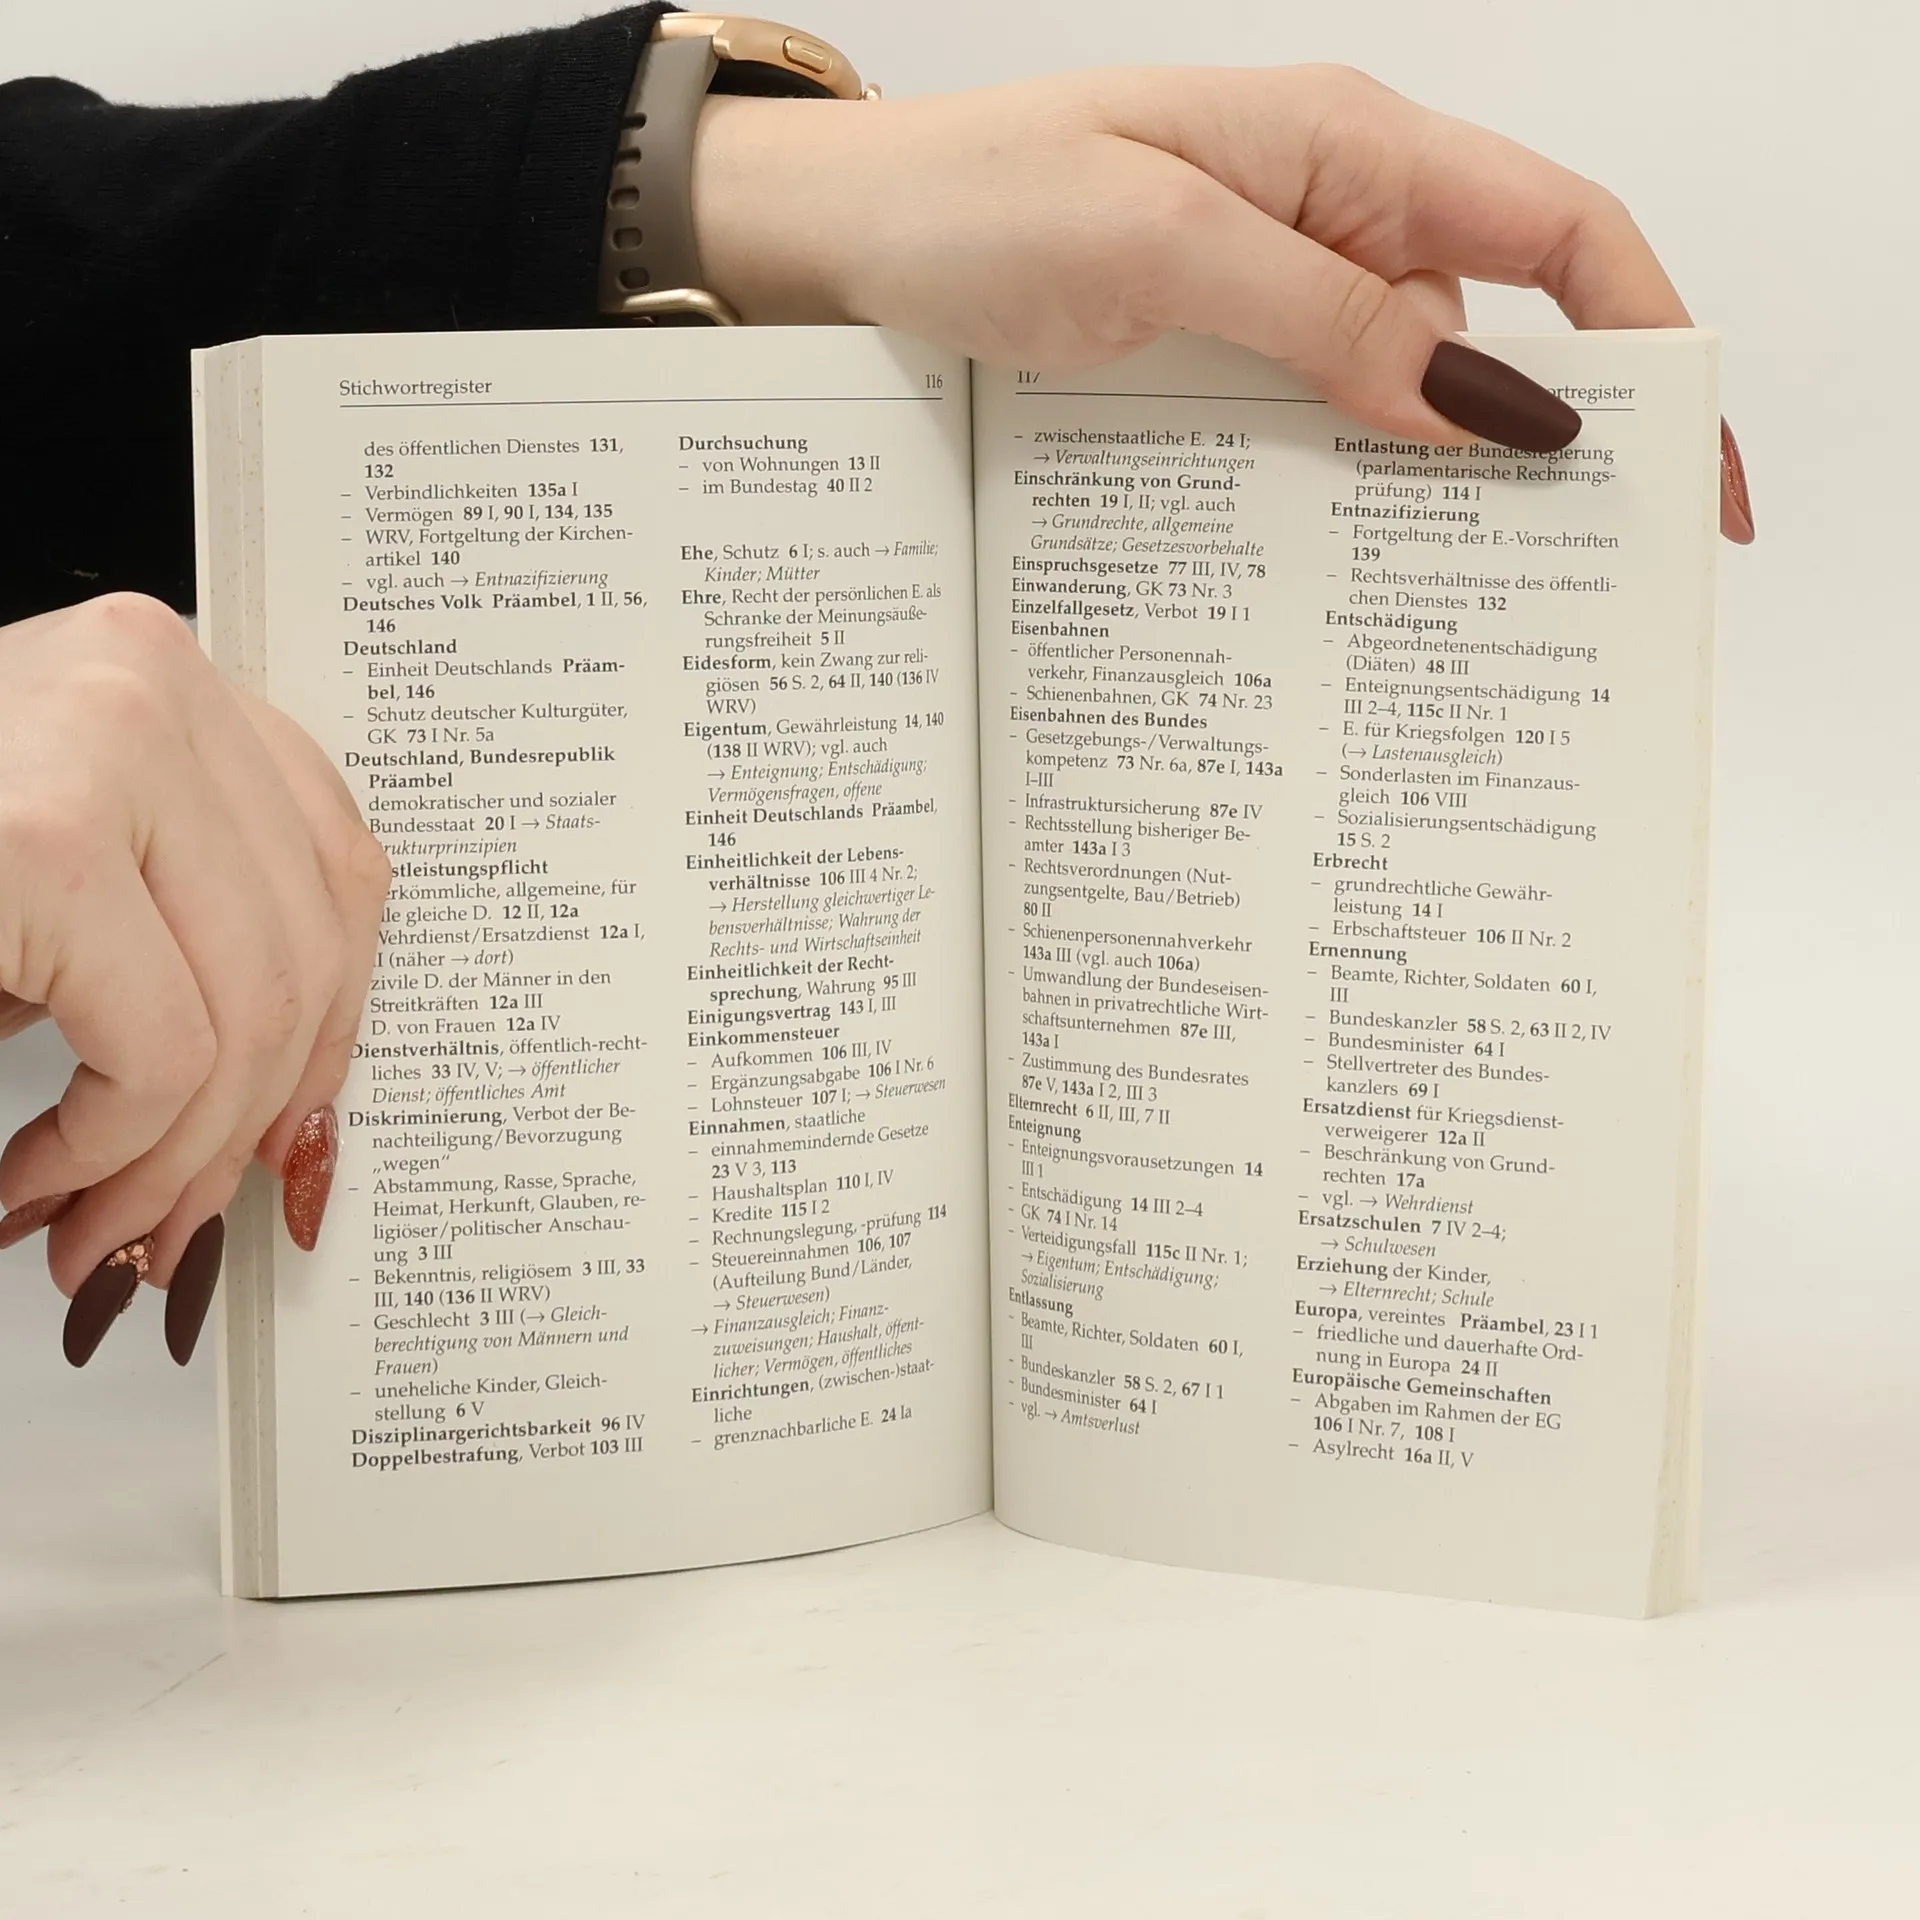 Stichwortregister 116
des öffentlichen Dienstes 131,
132
– Verbindlichkeiten 135a I
– Vermögen 89 I, 90 I, 134, 135
– WRV, Fortgeltung der Kirchen-
artikel 140
– vgl. auch → Entnazifizierung
Deutsches Volk Präambel, 1 II, 56,
146
Deutschland
– Einheit Deutschlands Präam-
bel, 146
– Schutz deutscher Kulturgüter,
GK 73 I Nr. 5a
Deutschland, Bundesrepublik
Präambel
demokratischer und sozialer
Bundesstaat 20 I → Staats-
rukturprinzipien
stleistungspflicht
erkömmliche, allgemeine, für
lle gleiche D. 12 II, 12a
Wehrdienst/Ersatzdienst 12a I,
I (näher → dort)
zivile D. der Männer in den
Streitkräften 12a III
D. von Frauen 12a IV
Dienstverhältnis, öffentlich-recht-
liches 33 IV, V; → öffentlicher
Dienst; öffentliches Amt
Diskriminierung, Verbot der Be-
nachteiligung/Bevorzugung
„wegen“
– Abstammung, Rasse, Sprache,
Heimat, Herkunft, Glauben, re-
ligiöser/politischer Anschau-
ung 3 III
– Bekenntnis, religiösem 3 III, 33
III, 140 (136 II WRV)
– Geschlecht 3 III (→ Gleich-
berechtigung von Männern und
Frauen)
– uneheliche Kinder, Gleich-
stellung 6 V
Disziplinargerichtsbarkeit 96 IV
Doppelbestrafung, Verbot 103 III
Durchsuchung
– von Wohnungen 13 II
– im Bundestag 40 II 2
Ehe, Schutz 6 I; s. auch → Familie;
Kinder; Mütter
Ehre, Recht der persönlichen E. als
Schranke der Meinungsäuße-
rungsfreiheit 5 II
Eidesform, kein Zwang zur reli-
giösen 56 S. 2, 64 II, 140 (136 IV
WRV)
Eigentum, Gewährleistung 14, 140
(138 II WRV); vgl. auch
→ Enteignung; Entschädigung;
Vermögensfragen, offene
Einheit Deutschlands Präambel,
146
Einheitlichkeit der Lebens-
verhältnisse 106 III 4 Nr. 2;
→ Herstellung gleichwertiger Le-
bensverhältnisse; Wahrung der
Rechts- und Wirtschaftseinheit
Einheitlichkeit der Recht-
sprechung, Wahrung 95 III
Einigungsvertrag 143 I, III
Einkommensteuer
– Aufkommen 106 III, IV
– Ergänzungsabgabe 106 I Nr. 6
– Lohnsteuer 107 I; → Steuerwesen
Einnahmen, staatliche
– einnahmemindernde Gesetze
23 V 3, 113
– Haushaltsplan 110 I, IV
– Kredite 115 I 2
– Rechnungslegung, -prüfung 114
– Steuereinnahmen 106, 107
(Aufteilung Bund/Länder,
→ Steuerwesen)
→ Finanzausgleich; Finanz-
zuweisungen; Haushalt, öffent-
licher; Vermögen, öffentliches
Einrichtungen, (zwischen-)staat-
liche
– grenznachbarliche E. 24 Ia
117 ortregister
– zwischenstaatliche E. 24 I;
→ Verwaltungseinrichtungen
Einschränkung von Grund-
rechten 19 I, II; vgl. auch
→ Grundrechte, allgemeine
Grundsätze; Gesetzesvorbehalte
Einspruchsgesetze 77 III, IV, 78
Einwanderung, GK 73 Nr. 3
Einzelfallgesetz, Verbot 19 I 1
Eisenbahnen
– öffentlicher Personennah-
verkehr, Finanzausgleich 106a
– Schienenbahnen, GK 74 Nr. 23
Eisenbahnen des Bundes
– Gesetzgebungs-/Verwaltungs-
kompetenz 73 Nr. 6a, 87e I, 143a
I–III
– Infrastruktursicherung 87e IV
– Rechtsstellung bisheriger Be-
amter 143a I 3
– Rechtsverordnungen (Nut-
zungsentgelte, Bau/Betrieb)
80 II
– Schienenpersonennahverkehr
143a III (vgl. auch 106a)
– Umwandlung der Bundeseisen-
bahnen in privatrechtliche Wirt-
schaftsunternehmen 87e III,
143a I
– Zustimmung des Bundesrates
87e V, 143a I 2, III 3
Elternrecht 6 II, III, 7 II
Enteignung
– Enteignungsvorausetzungen 14
III 1
– Entschädigung 14 III 2–4
– GK 74 I Nr. 14
– Verteidigungsfall 115c II Nr. 1;
→ Eigentum; Entschädigung;
Sozialisierung
Entlassung
– Beamte, Richter, Soldaten 60 I,
III
– Bundeskanzler 58 S. 2, 67 I 1
– Bundesminister 64 I
– vgl. → Amtsverlust
Entlastung der Bundesregierung
(parlamentarische Rechnungs-
prüfung) 114 I
Entnazifizierung
– Fortgeltung der E.-Vorschriften
139
– Rechtsverhältnisse des öffentli-
chen Dienstes 132
Entschädigung
– Abgeordnetenentschädigung
(Diäten) 48 III
– Enteignungsentschädigung 14
III 2–4, 115c II Nr. 1
– E. für Kriegsfolgen 120 I 5
(→ Lastenausgleich)
– Sonderlasten im Finanzaus-
gleich 106 VIII
– Sozialisierungsentschädigung
15 S. 2
Erbrecht
– grundrechtliche Gewähr-
leistung 14 I
– Erbschaftsteuer 106 II Nr. 2
Ernennung
– Beamte, Richter, Soldaten 60 I,
III
– Bundeskanzler 58 S. 2, 63 II 2, IV
– Bundesminister 64 I
– Stellvertreter des Bundes-
kanzlers 69 I
Ersatzdienst für Kriegsdienst-
verweigerer 12a II
– Beschränkung von Grund-
rechten 17a
– vgl. → Wehrdienst
Ersatzschulen 7 IV 2–4;
→ Schulwesen
Erziehung der Kinder,
→ Elternrecht; Schule
Europa, vereintes Präambel, 23 I 1
– friedliche und dauerhafte Ord-
nung in Europa 24 II
Europäische Gemeinschaften
– Abgaben im Rahmen der EG
106 I Nr. 7, 108 I
– Asylrecht 16a II, V